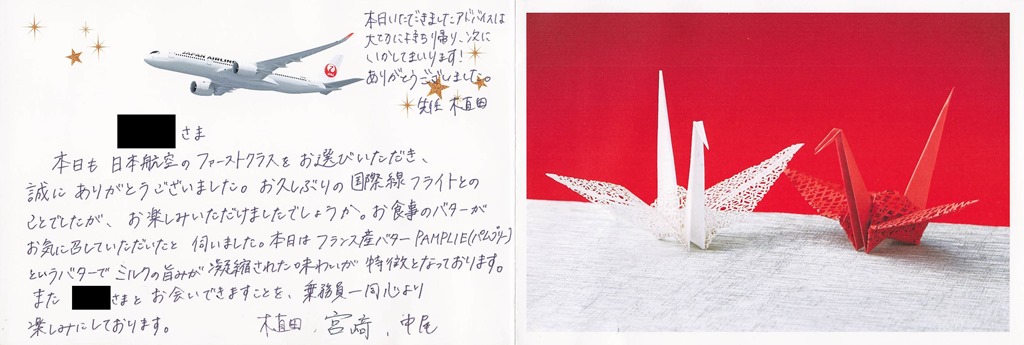 本日いただきましたアドバイスは
大切に持ち帰り、次に
いかしてまいります!
ありがとうございました。
先任 植田
JAPAN AIRLINES
さま
本日も 日本航空の ファーストクラスを お選びいただき、
誠に ありがとうございました。お久しぶりの 国際線フライトとの
ことでしたが、お楽しみいただけましたでしょうか。お食事のバターが
お気に召していただいたと 伺いました。本日は フランス産バター PAMPLIE(パムプリー)
というバターで ミルクの旨みが 凝縮された味わいが 特徴となっております。
また さまと お会いできますことを、乗務員一同心より
楽しみにしております。
植田、宮﨑、中尾